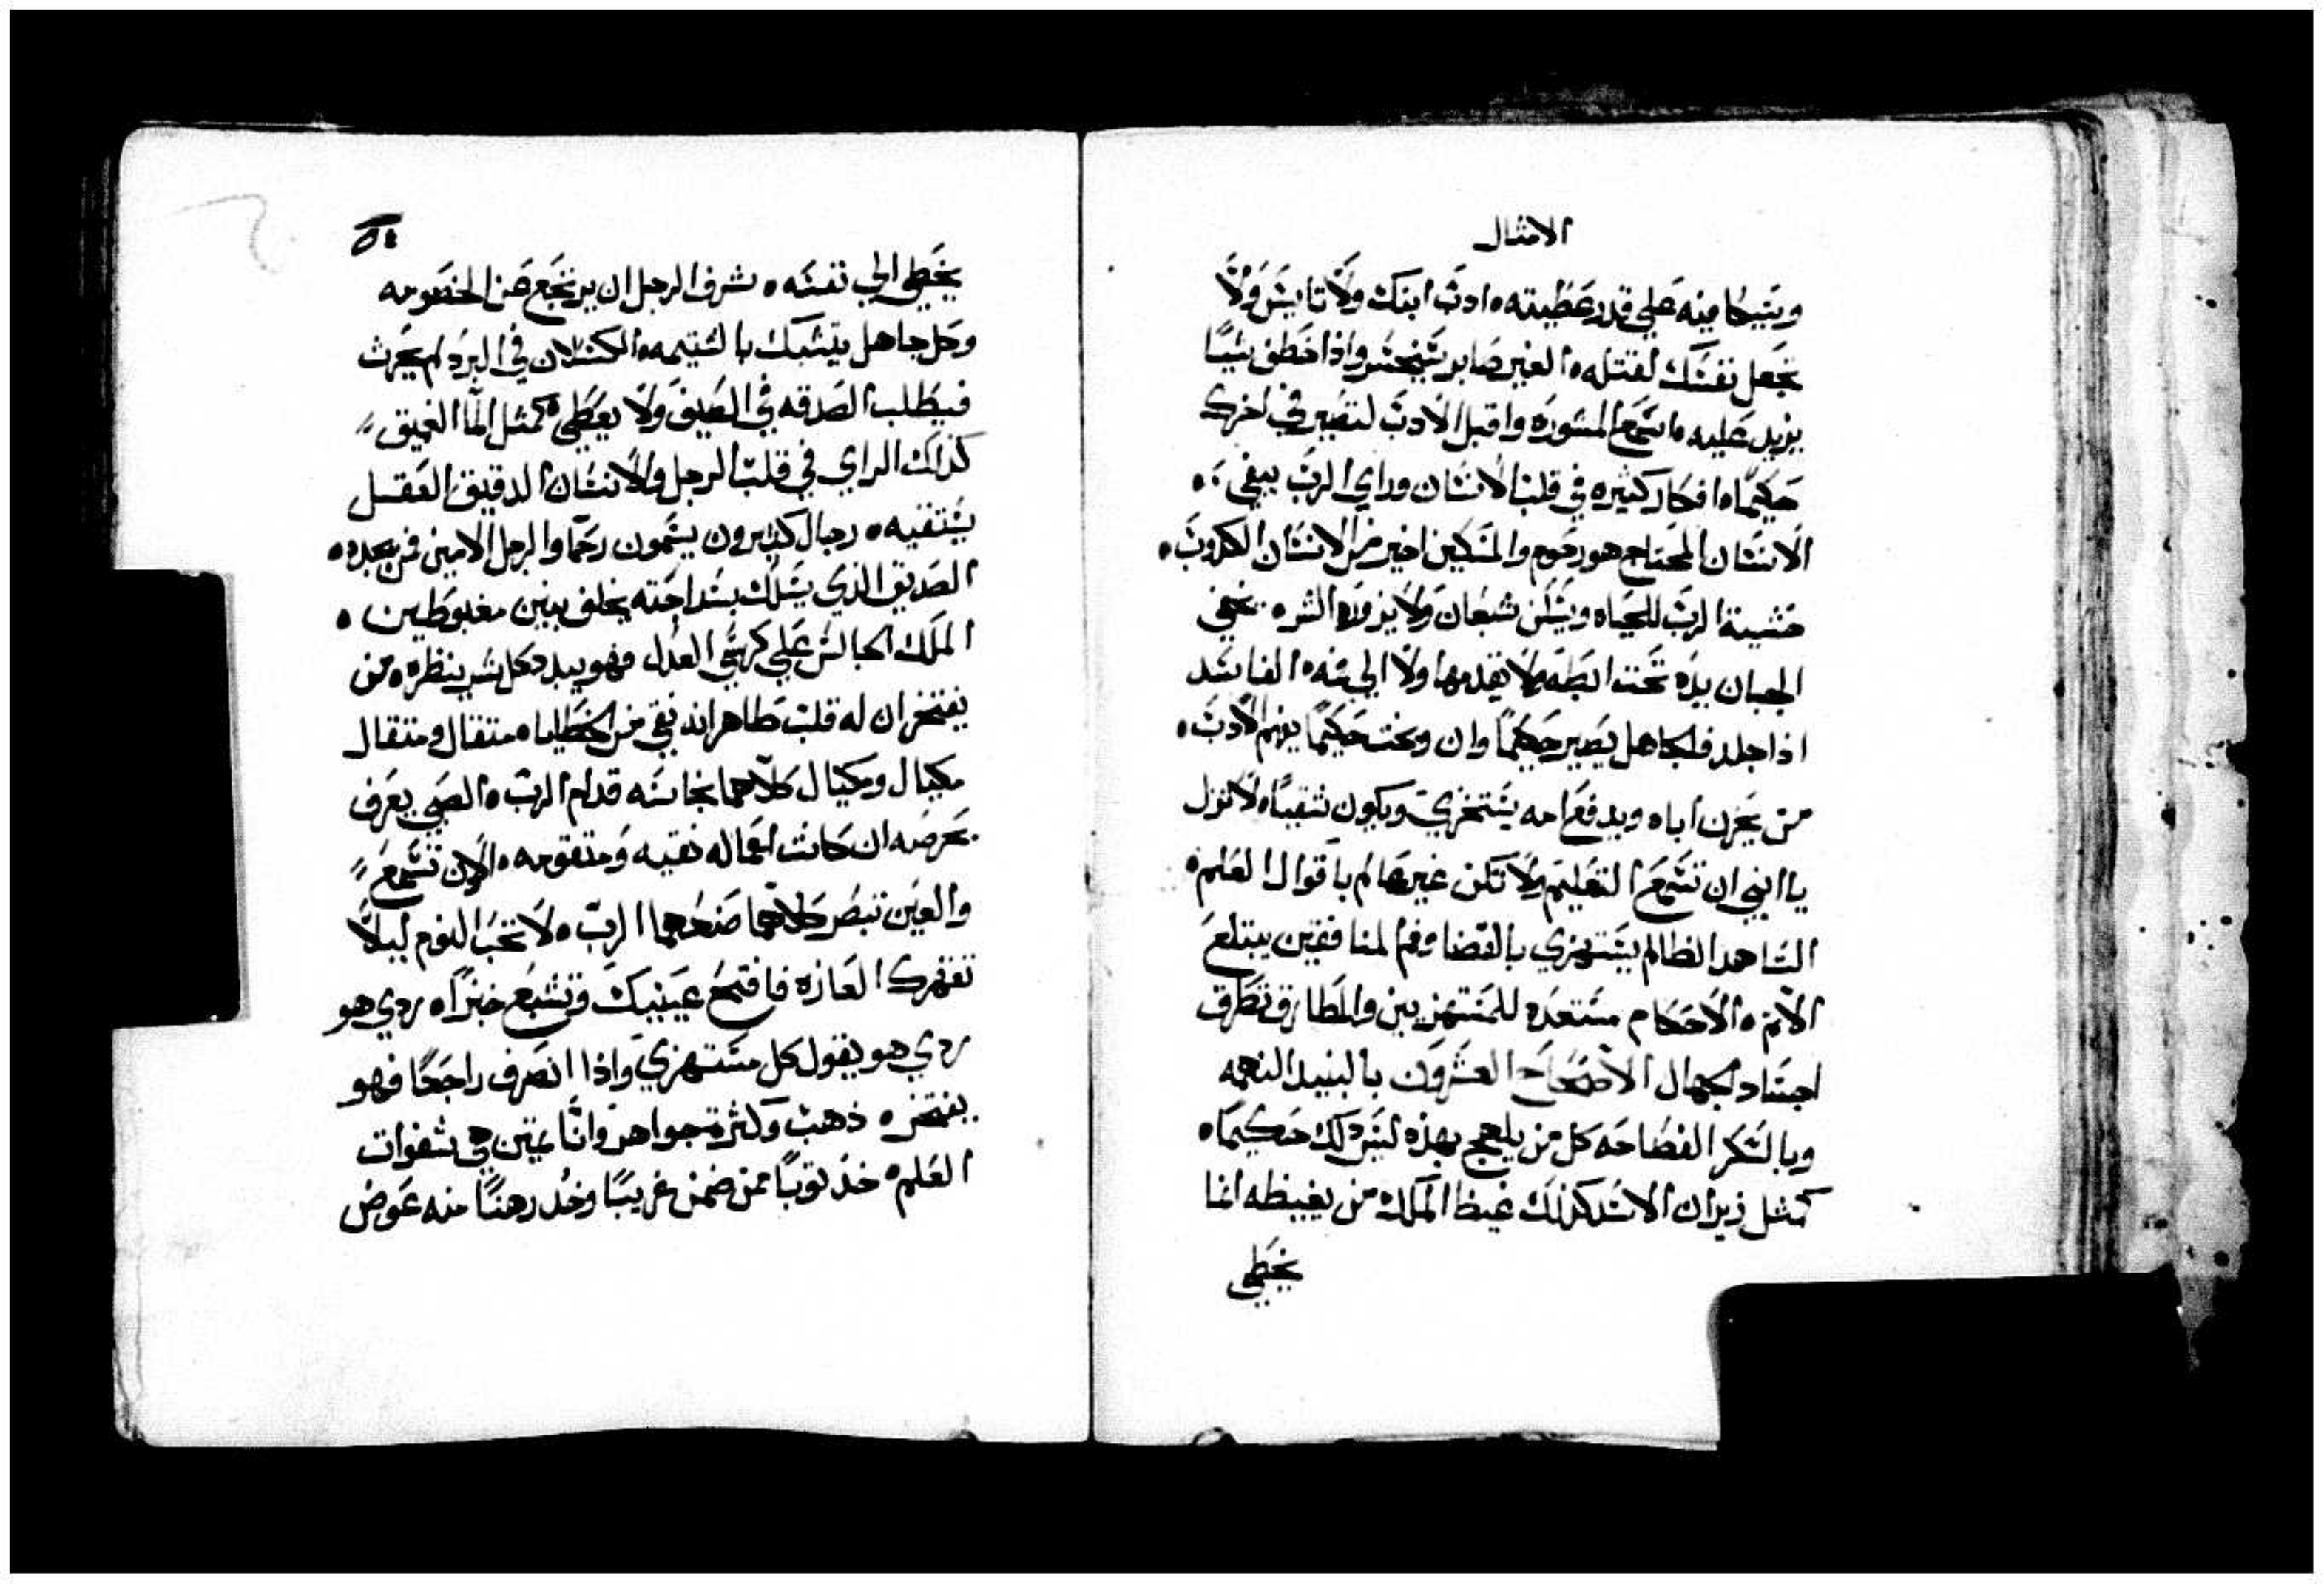 الامثال
ويتيكا فيه علي قدر عظيته ٥ ادب ابنك ولا تايس ولا
تجعل نفسك لقتله ٥ الغير صابر يتخسر واذا خطف شيًا
يزيد عليه ٥ اسمع المشوره واقبل الادب لتصير في اخرك
حكيمًا ٥ افكار كثيره في قلب الانسان وراي الرب يبقي ٥
الانسان المحتاج هو رحوم والمسكين اخير من الانسان الكدوب ٥
خشية الرب للحياه ويسكن شبعان ولا يزوره الشر ٥ يخفي
الجبان يده تحت ابطه ولا يقدمها ولا الي فمه ٥ الفاسد
اذا جلد فالجاهل يصير حكيمًا وان وبخت حكيمًا يفهم الادب ٥
من يحزن اباه ويدفع امه يستخزي ويكون شقيًا ٥ لا تزل
يا ابني ان تسمع التعليم ولا تكن غير عالم باقوال العلم ٥
الشاهد الظالم يستهزي بالقضا وفم المنافقين يبتلع
الاثم ٥ الاحكام مستعده للمستهزيين والمطارق تطرق
اجساد الجهال الاصحاح العشرون بالنبيد النعمه
وبالسكر الفضاحه كل من يلهج بهذه ليس دلك حكيمًا ٥
كمثل زيران الاسد كذلك غيظ الملك من يغيظه انما
يخطي
٥٤
يخطي الي نفسه ٥ شرف الرجل ان يرتجع عن الخصومه
وكل جاهل يتشبك بالشتيمه ٥ الكسلان في البرد لم يحرث
فيطلب الصدقه في الصيف ولا يعطي ٥ كمثل الما العميق
كذلك الراي في قلب الرجل والانسان الدقيق العقل
يستقيه ٥ رجال كثيرون يسمون رحما والرجل الامين فمن يجده ٥
الصديق الذي يسلك بسداجته يخلف بنين مغبوطين ٥
الملك الجالس علي كرسي العدل فهو يبدد كل شر بنظره ٥ من
يفتخر ان له قلب طاهر انه نقي من الخطايا ٥ متقال ومتقال
مكيال ومكيال كلاهما نجاسه قدام الرب ٥ الصبي يعرف
بحرصه ان كانت اعماله نقيه ومتقومه ٥ الادن تسمع
والعين تبصر كلاهما صنعهما الرب ٥ لا تحب النوم ليلا
تقهرك العازه فافتح عينيك وتشبع خبزًا ٥ ردي هو
ردي هو يقول كل مستهزي واذا انصرف راجعًا فهو
يفتخر ٥ ذهب وكثرة جواهر وانا تمين هي شفوات
العلم ٥ خذ توبًا ممن ضمن غريبًا وخد رهنًا منه عوض